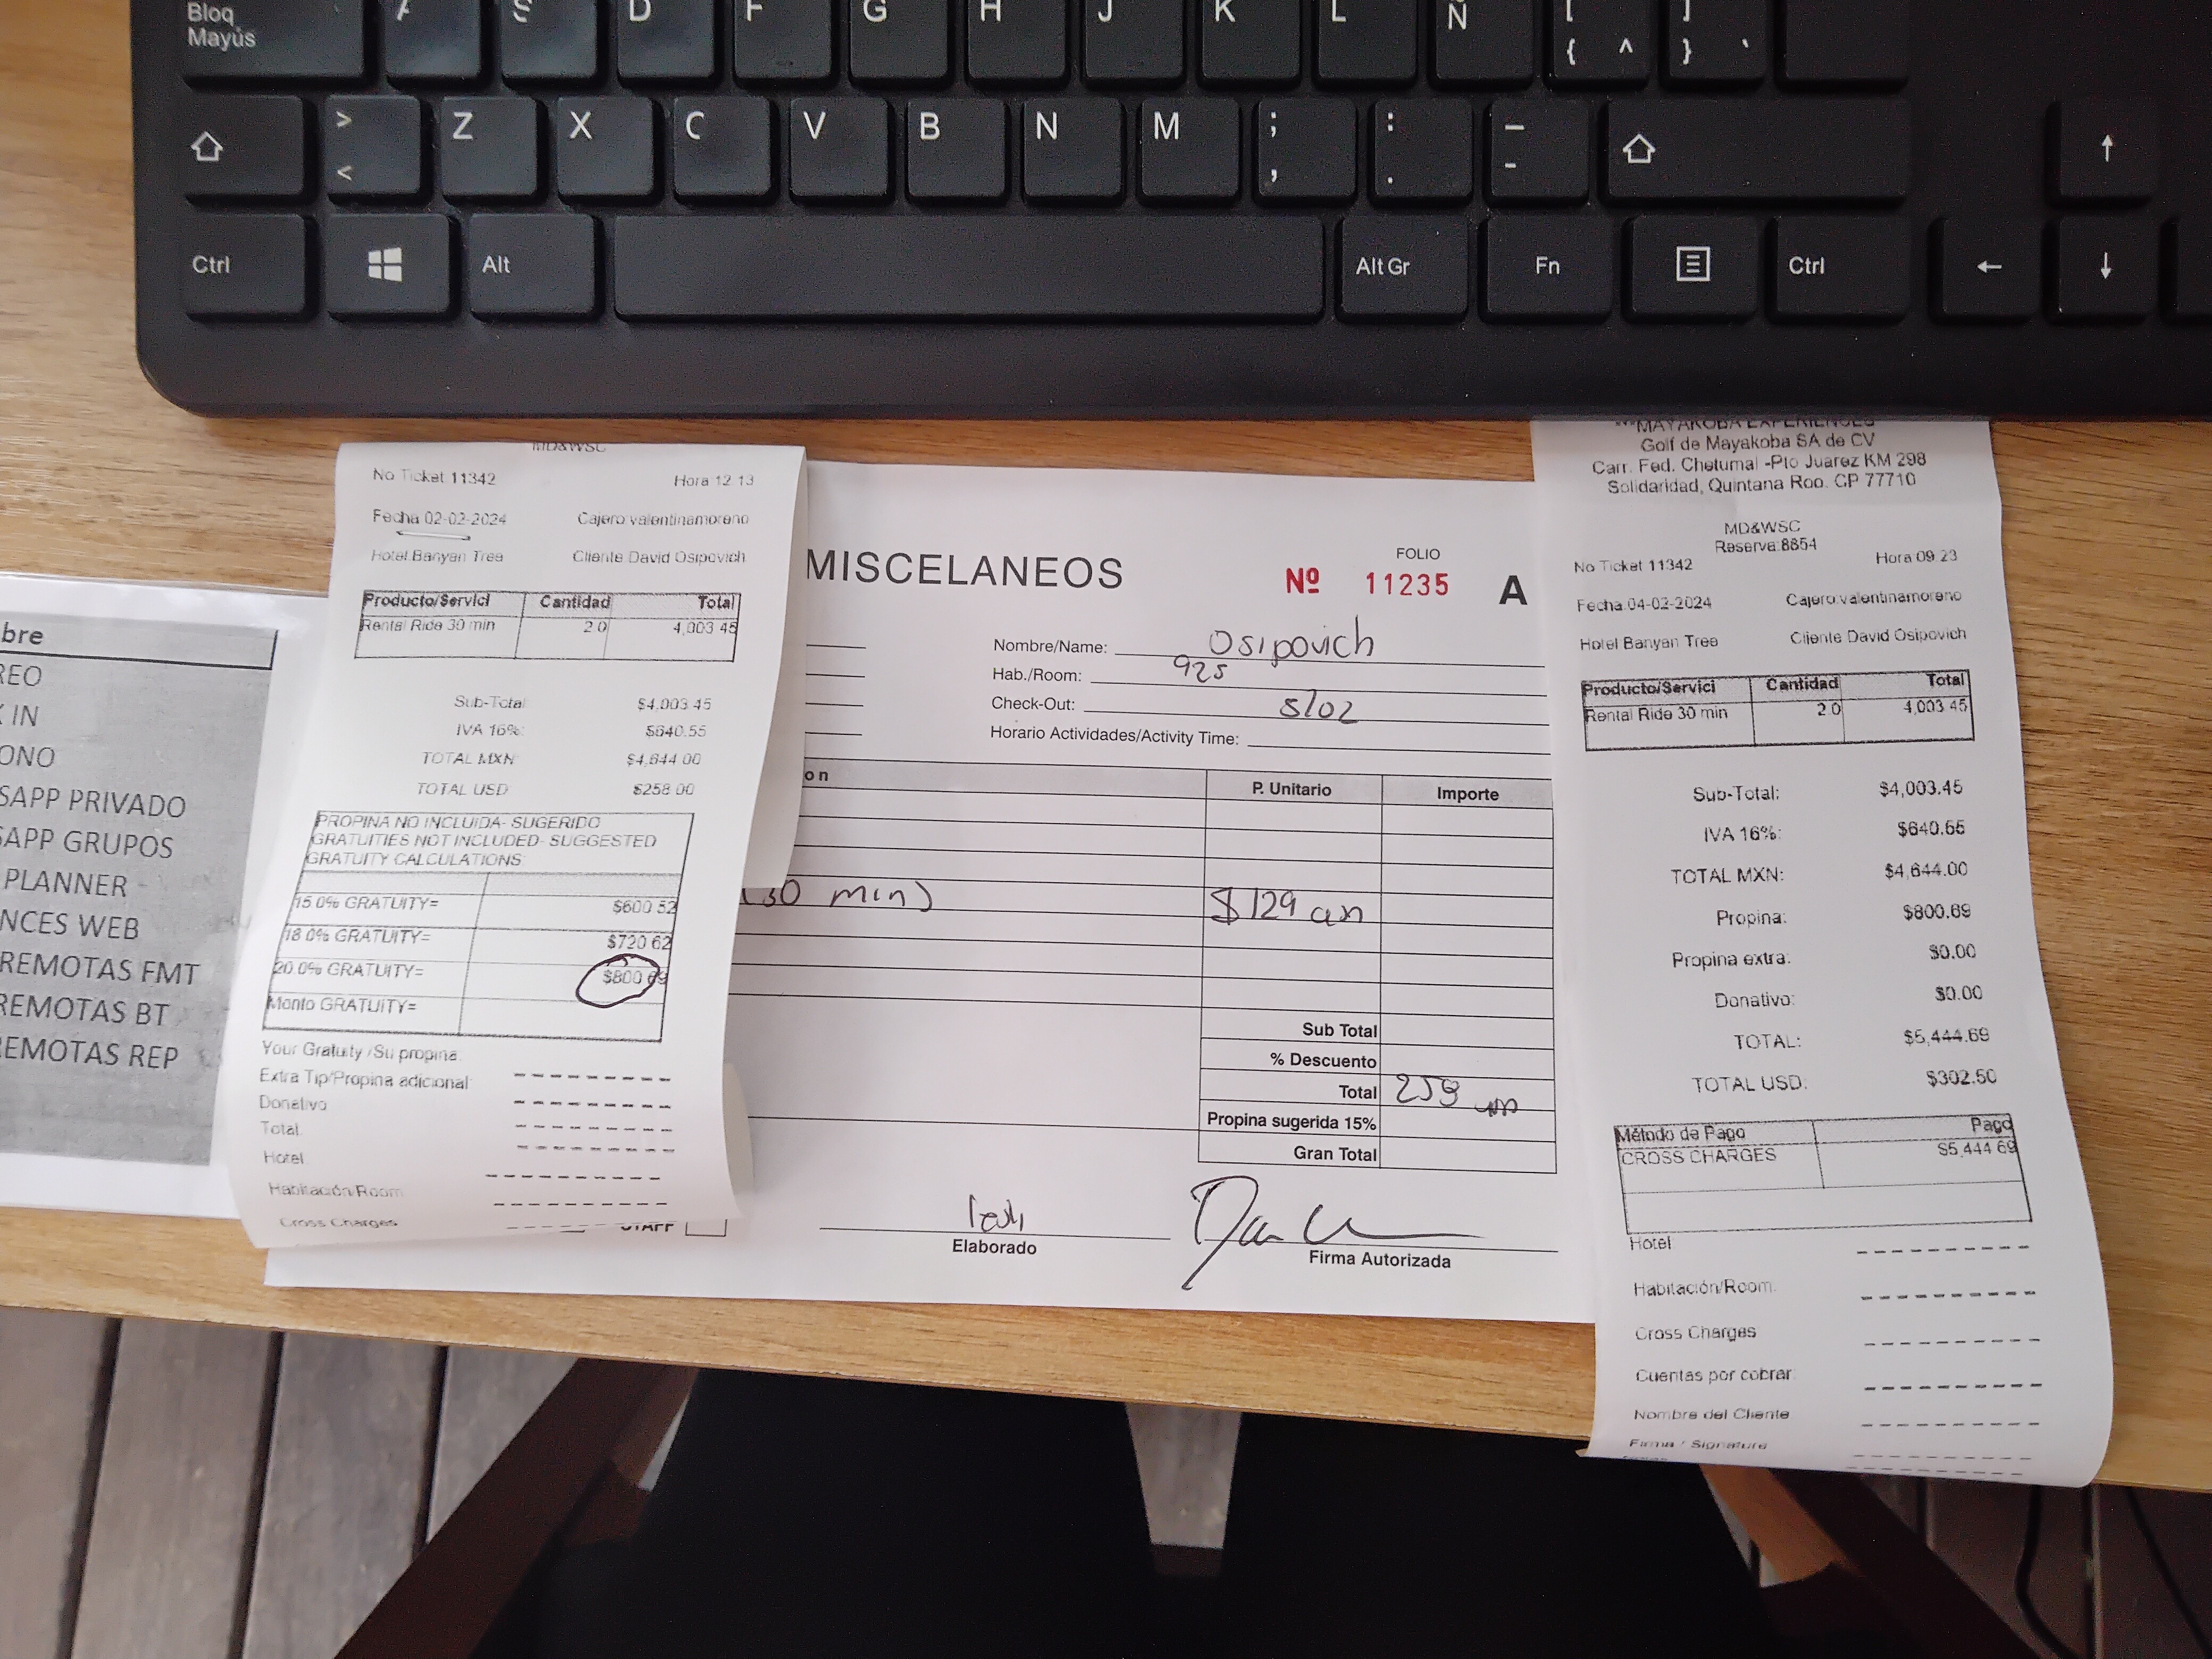 Bloq
Mayús
A S D F G H J K L Ñ [ ]
{ ^ } `
> Z X C V B N M ; : _
< , . -
Ctrl Alt Alt Gr Fn Ctrl
bre
REO
K IN
ONO
SAPP PRIVADO
SAPP GRUPOS
PLANNER
NCES WEB
REMOTAS FMT
REMOTAS BT
REMOTAS REP
MD&WSC
No Ticket 11342 Hora 12:13
Fecha 02-02-2024 Cajero:valentinamoreno
Hotel Banyan Tree Cliente David Osipovich
Producto/Servici Cantidad Total
Rental Ride 30 min 2.0 4,003.45
Sub-Total: $4,003.45
IVA 16%: $640.55
TOTAL MXN: $4,644.00
TOTAL USD $258.00
PROPINA NO INCLUIDA- SUGERIDO
GRATUITIES NOT INCLUDED- SUGGESTED
GRATUITY CALCULATIONS:
15.0% GRATUITY= $600.52
18.0% GRATUITY= $720.62
20.0% GRATUITY= $800.69
Monto GRATUITY=
Your Gratuity /Su propina:
Extra Tip/Propina adicional:
Donativo
Total:
Hotel
Habitación/Room
Cross Charges
MISCELANEOS
FOLIO
Nº 11235 A
Nombre/Name: Osipovich
Hab./Room: 925
Check-Out: 5/02
Horario Actividades/Activity Time:
on P. Unitario Importe
(30 min) $129
Sub Total
% Descuento
Total 258
Propina sugerida 15%
Gran Total
STAFF
Elaborado
Firma Autorizada
***MAYAKOBA EXPERIENCES
Golf de Mayakoba SA de CV
Carr. Fed. Chetumal -Pto Juarez KM 298
Solidaridad, Quintana Roo. CP 77710
MD&WSC
Reserva:8854
No Ticket 11342 Hora 09:23
Fecha:04-02-2024 Cajero:valentinamoreno
Hotel Banyan Tree Cliente David Osipovich
Producto/Servici Cantidad Total
Rental Ride 30 min 2.0 4,003.45
Sub-Total: $4,003.45
IVA 16%: $640.55
TOTAL MXN: $4,644.00
Propina: $800.69
Propina extra: $0.00
Donativo: $0.00
TOTAL: $5,444.69
TOTAL USD: $302.50
Método de Pago Pago
CROSS CHARGES $5,444.69
Hotel
Habitación/Room:
Cross Charges
Cuentas por cobrar:
Nombre del Cliente
Firma / Signature